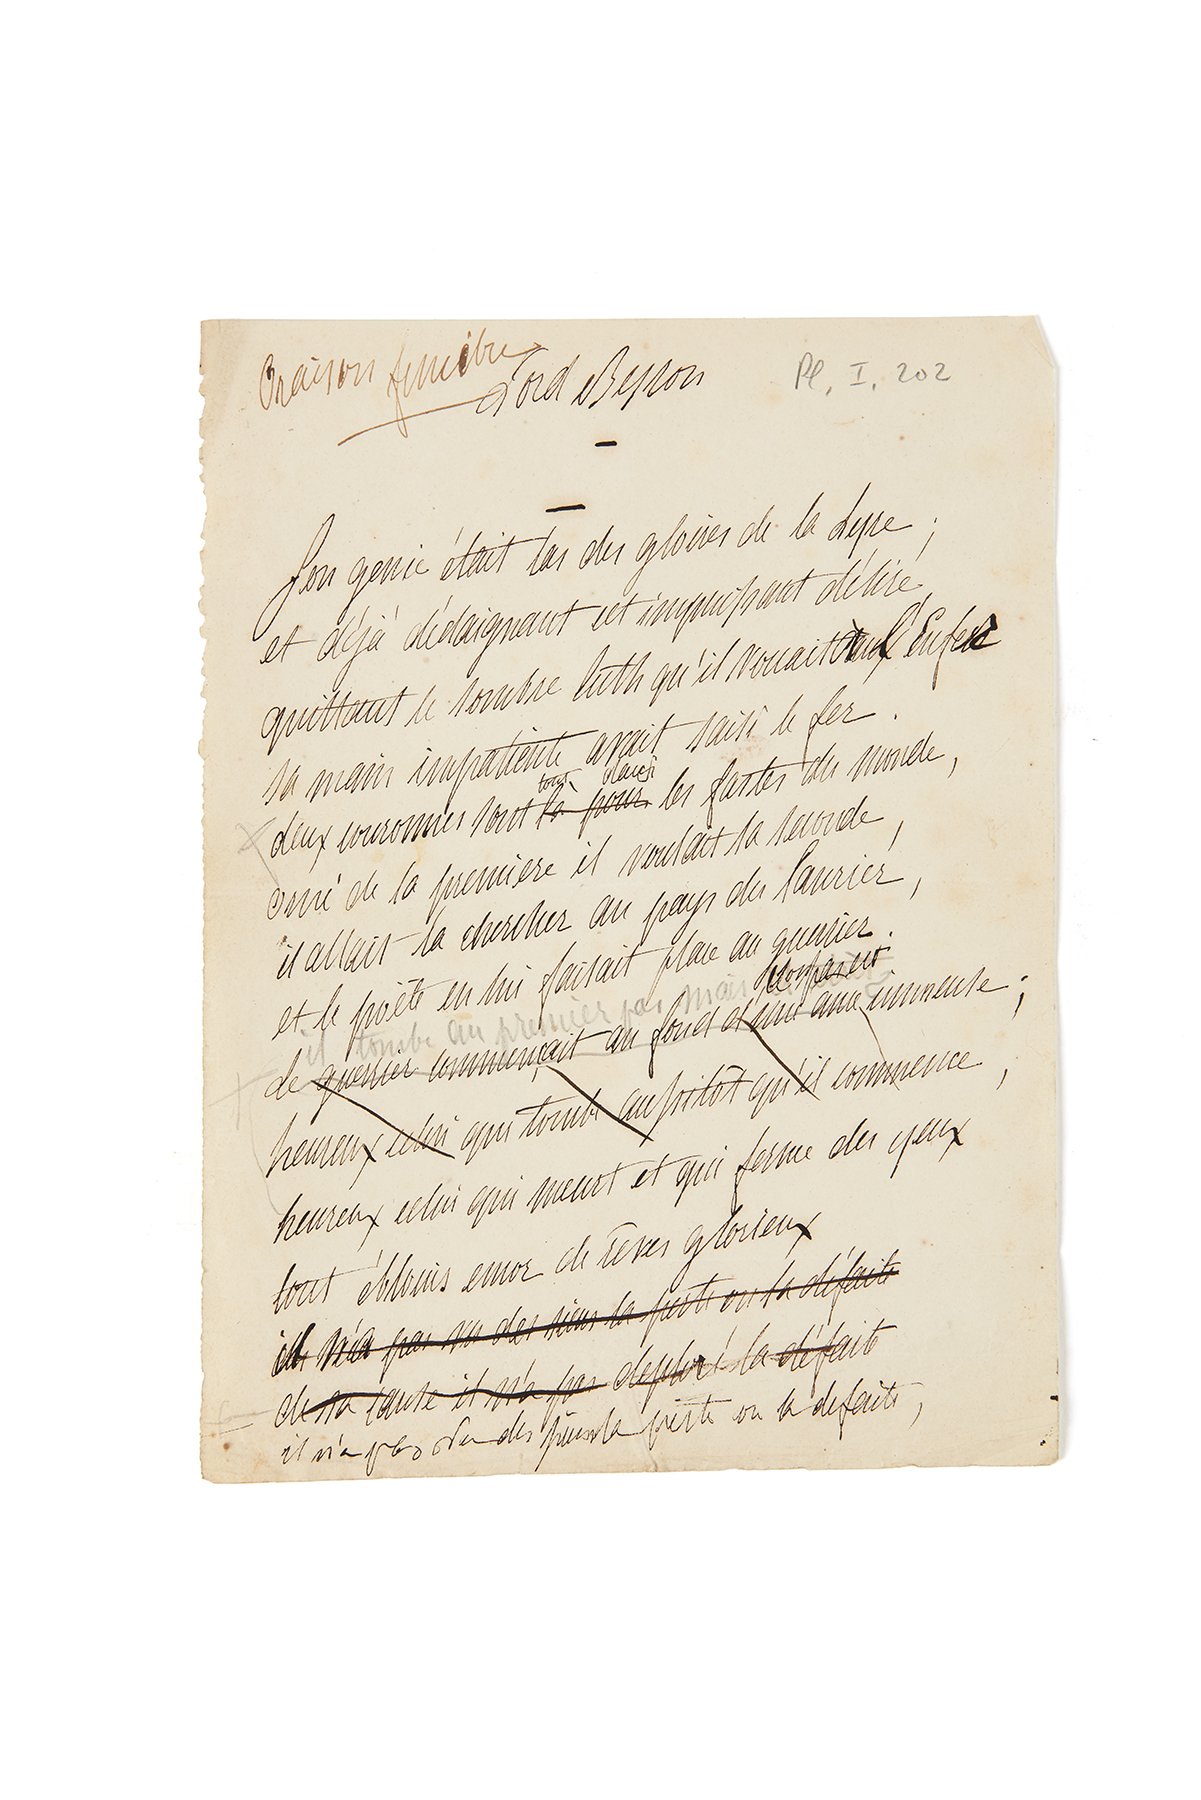 Oraison funèbre
Lord Byron
Pl. I. 202
Son génie était las des gloires de la Lyre ;
et déjà dédaignant cet impuissant délire
quittant le sombre luth qu'il vouait à l'Enfer
sa main impatiente avait saisi le fer .
tout
deux couronnes sont là pour les fastes du monde,
orné de la première il voulait la seconde ,
il allait la chercher au pays du laurier ,
et le poëte en lui faisait place au guerrier .
il tombe au premier pas mais
le guerrier commençait au fond d'une ame immense ;
heureux celui qui tombe aussitôt qu'il commence ,
heureux celui qui meurt et qui ferme des yeux
tout éblouis encor de rêves glorieux
il n'a pas vu des siens la perte ou la défaite
de sa cause il n'a pas déploré la défaite
il n'a pas vu des siens la perte ou la defaite ,